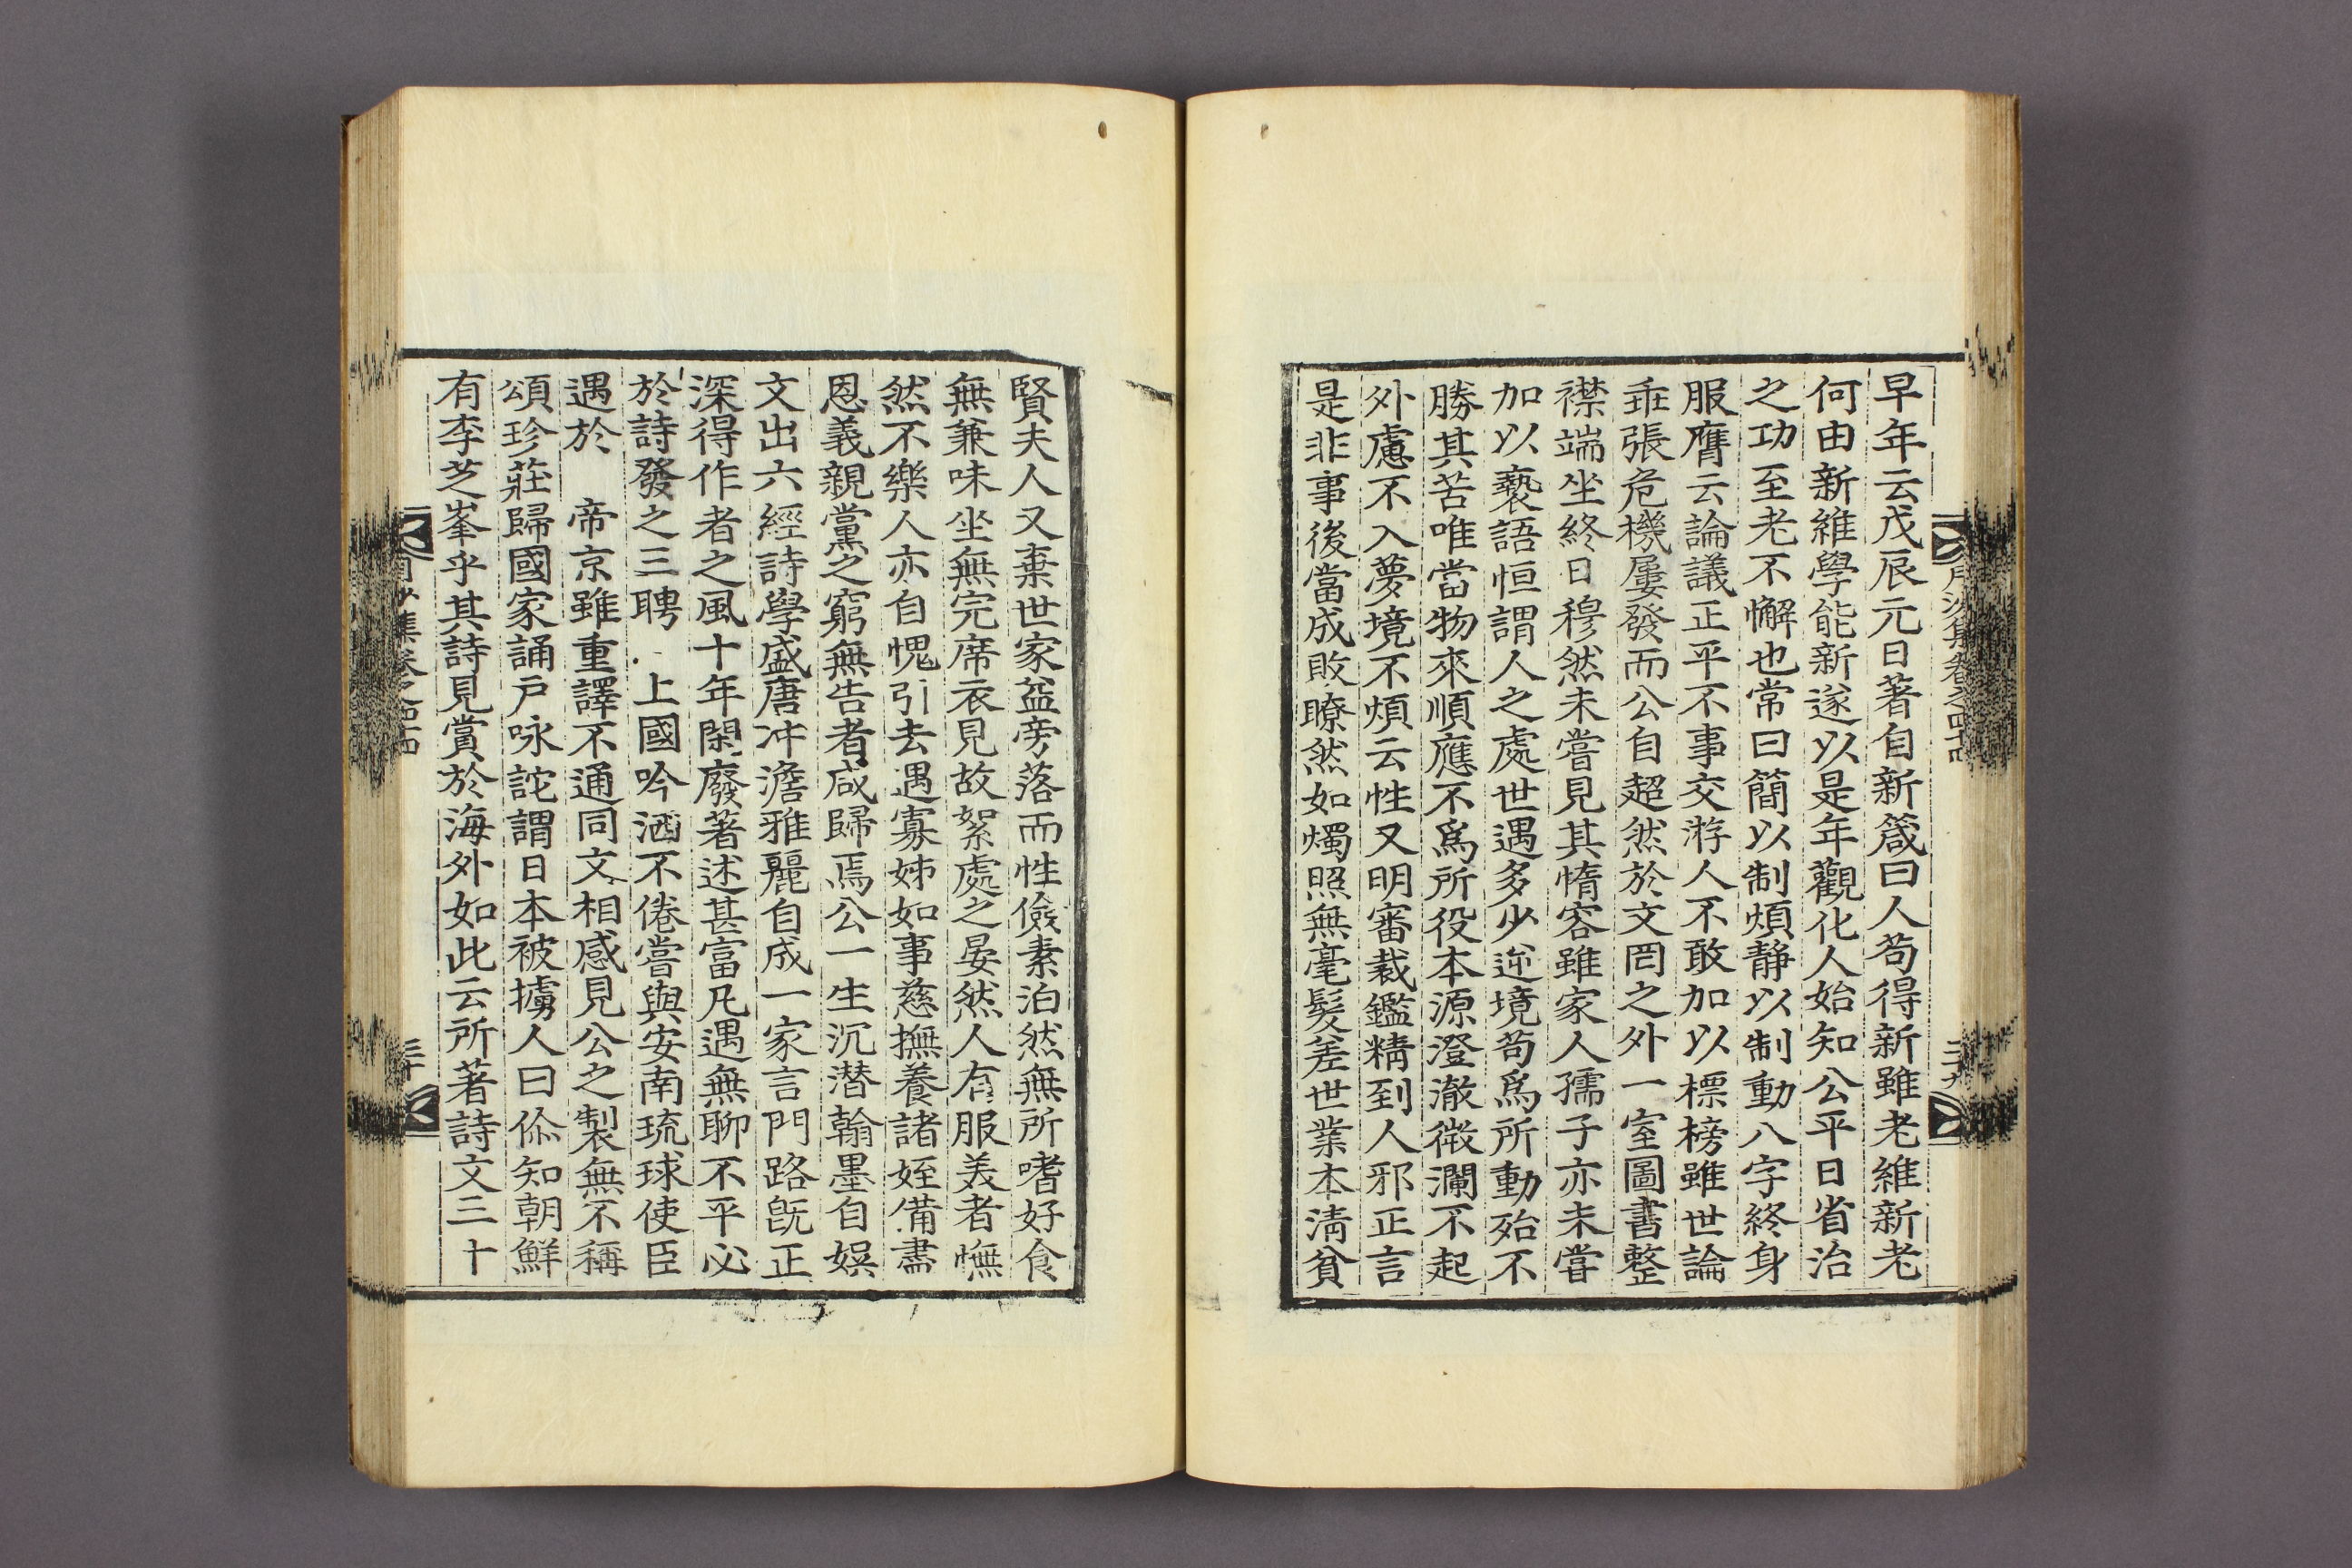 早年云戊辰元日著自新箴曰人苟得新雖老維新老
何由新維學能新遂以是年觀化人始知公平日省治
之功至老不懈也常曰簡以制煩靜以制動八字終身
服膺云論議正平不事交游人不敢加以標榜雖世論
乖張危機屢發而公自超然於文罔之外一室圖書整
襟端坐終日穆然未嘗見其惰容雖家人孺子亦未嘗
加以褻語恒謂人之處世遇多少逆境苟爲所動殆不
勝其苦唯當物來順應不爲所役本源澄澈微瀾不起
外慮不入夢境不煩云性又明審裁鑑精到人邪正言
是非事後當成敗瞭然如燭照無毫髮差世業本淸貧
月沙集卷之四十四
三十九
賢夫人又棄世家益旁落而性儉素泊然無所嗜好食
無兼味坐無完席衣見故絮處之晏然人有服美者憮
然不樂人亦自愧引去遇寡姊如事慈撫養諸姪備盡
恩義親黨之窮無告者咸歸焉公一生沉潛翰墨自娛
文出六經詩學盛唐冲澹雅麗自成一家言門路旣正
深得作者之風十年閑廢著述甚富凡遇無聊不平必
於詩發之三聘 上國吟洒不倦嘗與安南琉球使臣
遇於 帝京雖重譯不通同文相感見公之製無不稱
頌珍莊歸國家誦戶咏詫謂日本被擄人曰你知朝鮮
有李芝峯乎其詩見賞於海外如此云所著詩文三十
集卷之四十四